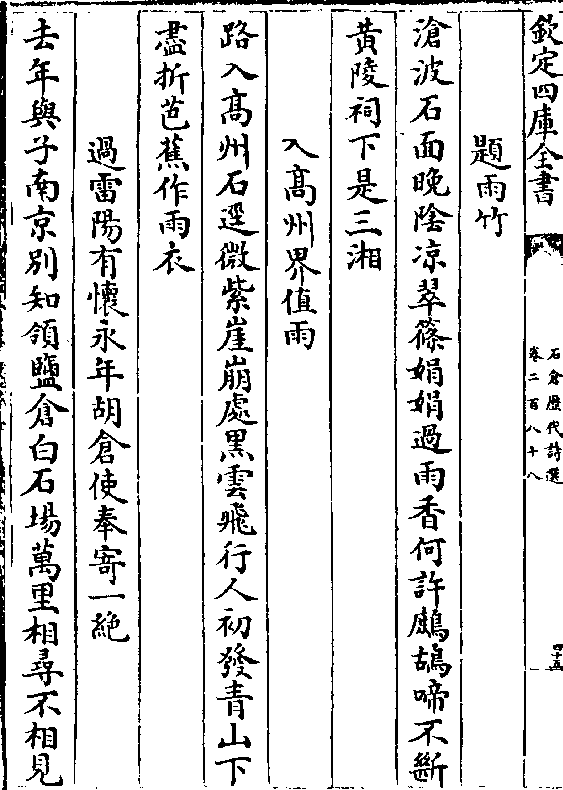 欽定四庫全書
石倉歷代詩選
卷二百八十八
四十五
題雨竹
滄波石面晚陰凉翠篠娟娟過雨香何許鷓鴣啼不斷
黄陵祠下是三湘
入髙州界值雨
路入髙州石逕微紫崖崩處黒雲飛行人初發青山下
盡折芭蕉作雨衣
過雷陽有懷永年胡倉使奉寄一絶
去年與子南京别知領鹽倉白石塲萬里相尋不相見